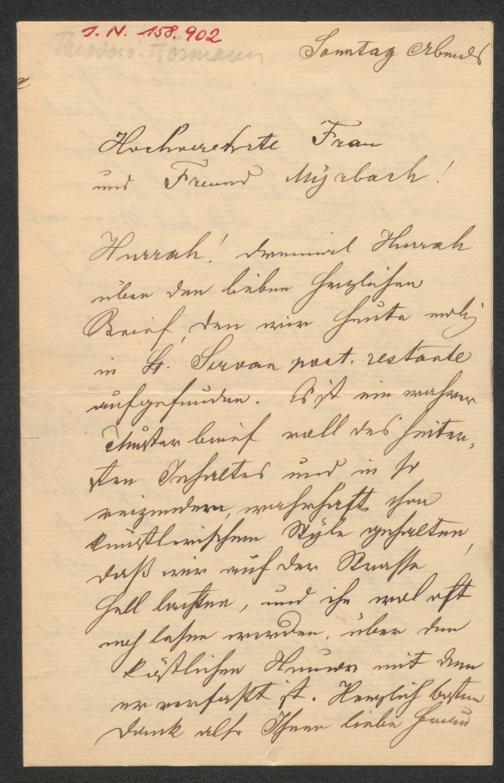 I. N. 158.902
Theodor v. Hörmann
Sonntag Abends
Hochverehrte Frau
und Freund Myrbach!
Hurrah! dreimal Hurrah
über den lieben herzlichen
Brief, den wir heute
in St. Servan post. restante
aufgefunden. Es ist ein wahrer
Musterbrief voll des heiter-
sten Inhaltes und in so
reizendem, wahrhaft
künstlerischem Style gehalten,
daß wir auf der Strasse
hell lachten, und ihn wol oft
noch lesen werden, über den
köstlichen Humor mit dem
er verfaßt ist. Herzlich besten
Dank also Ihnen liebe Frau